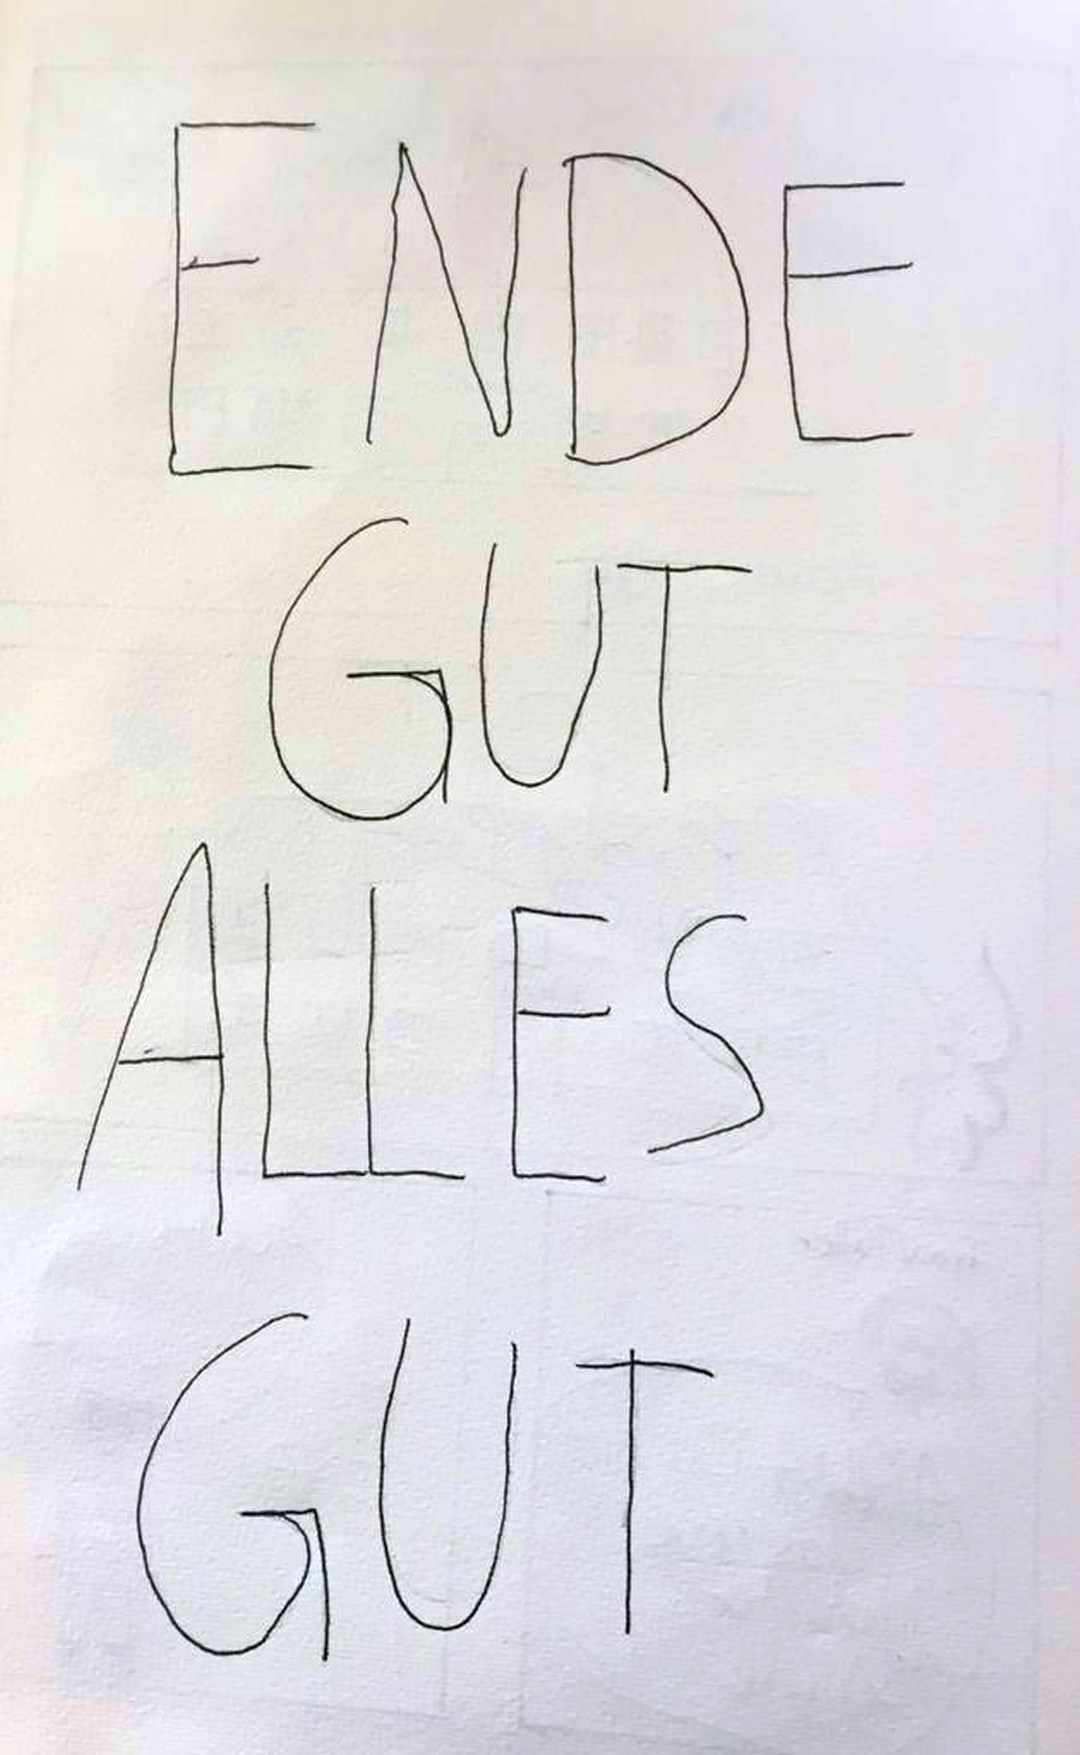 ENDE
GUT
ALLES
GUT